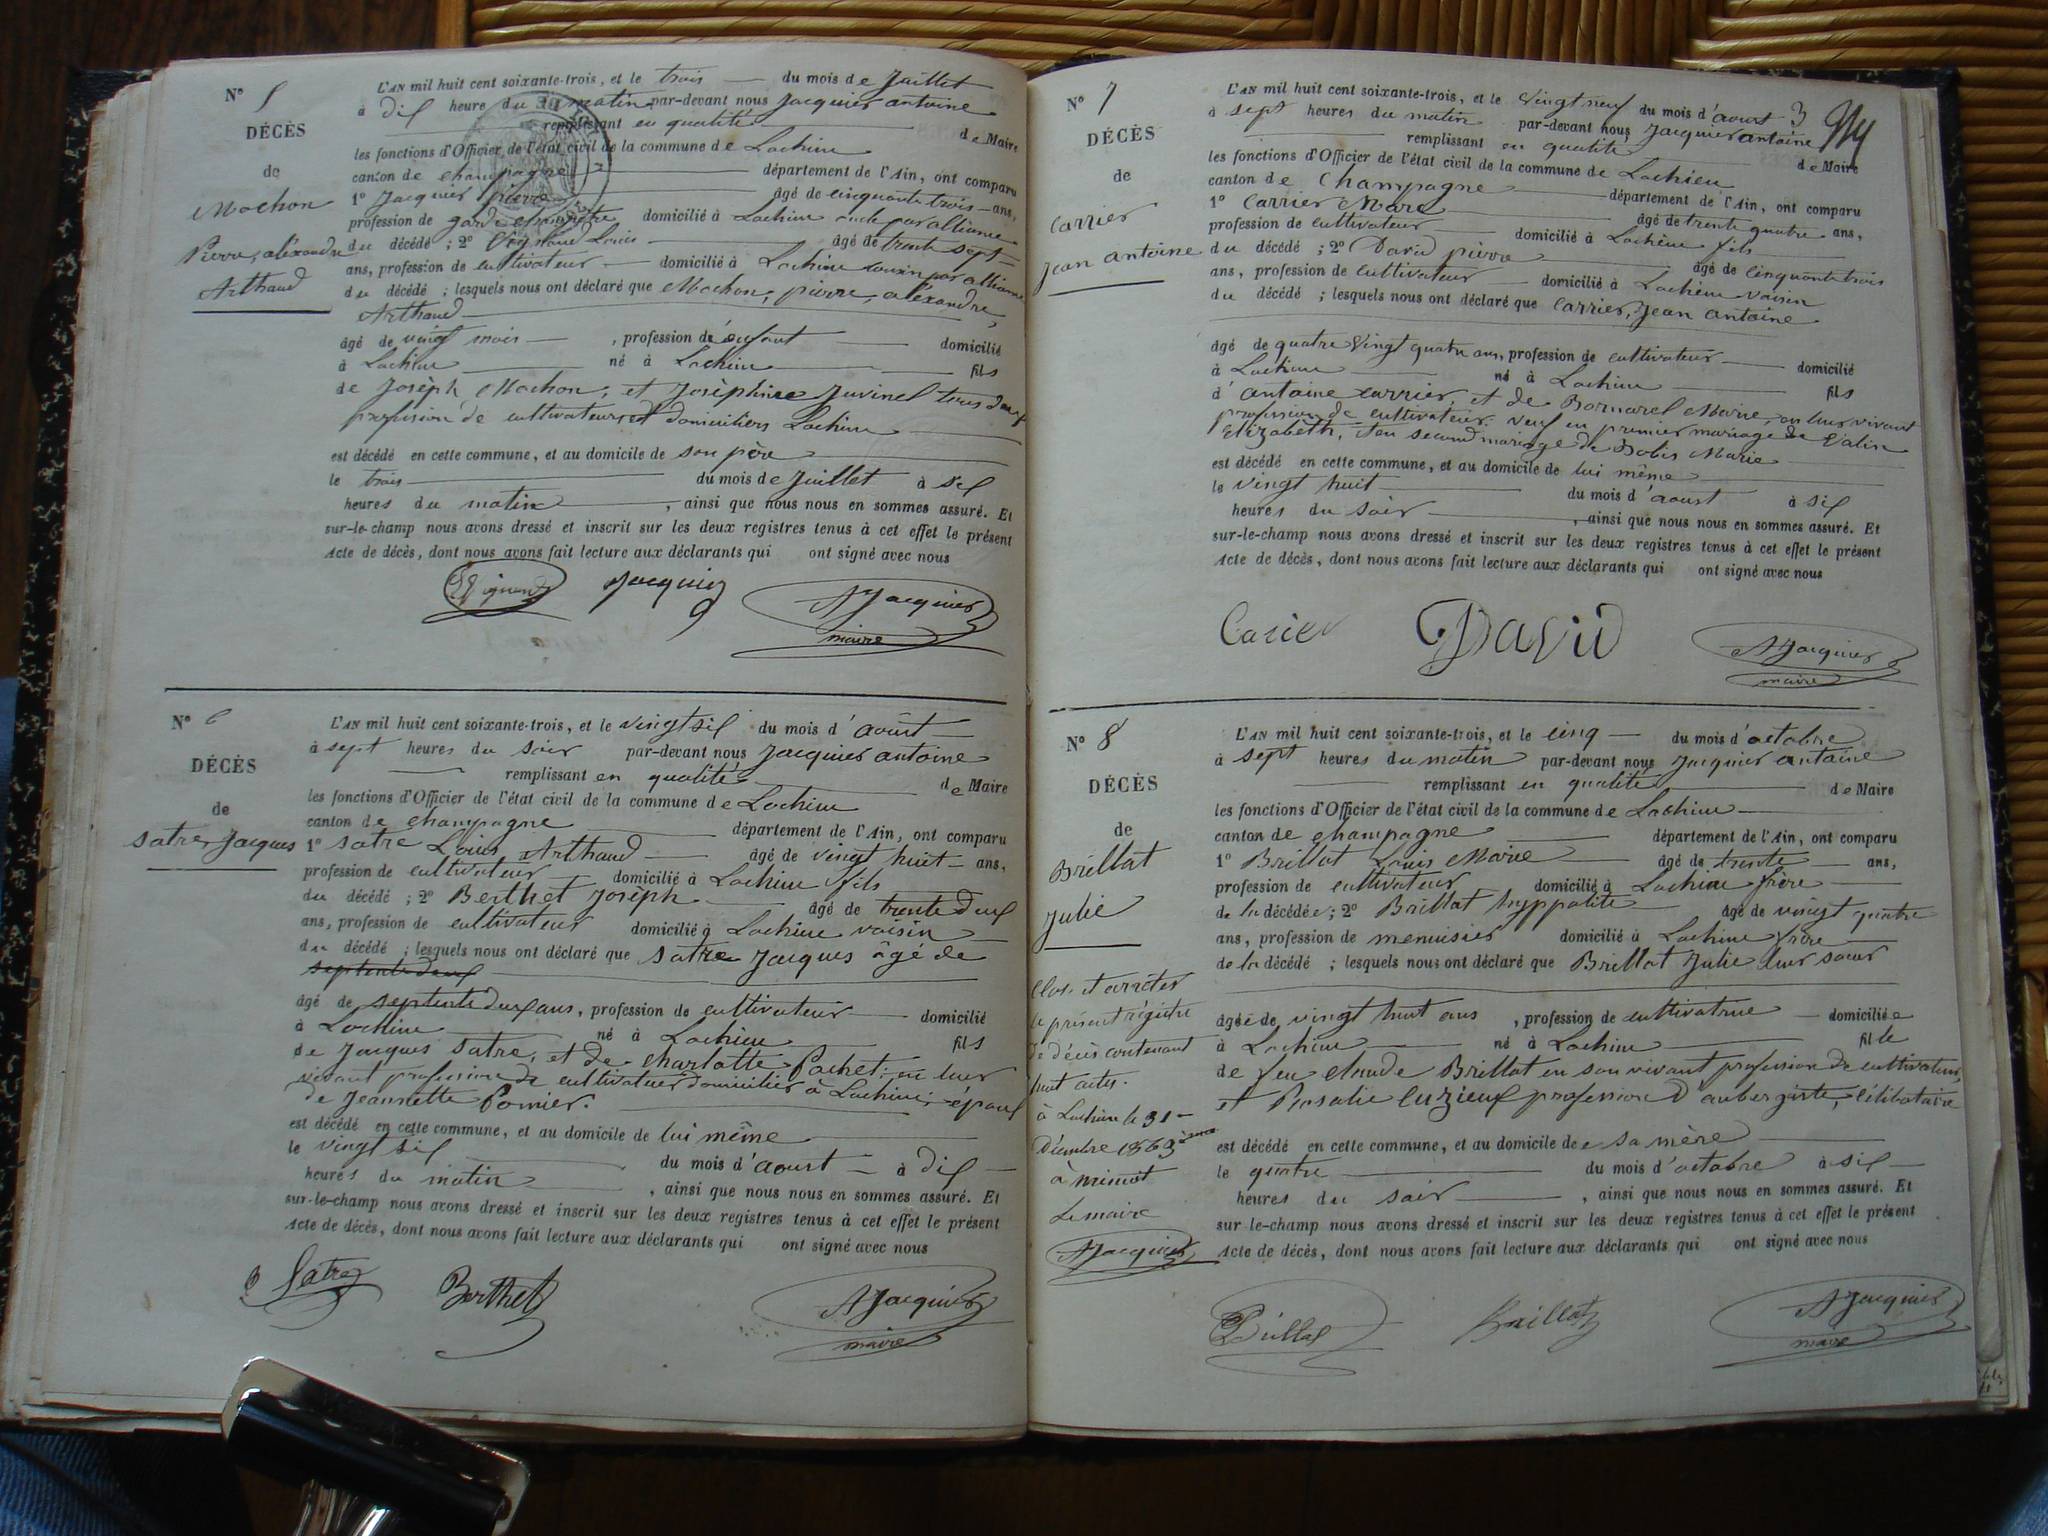 N° 5
DÉCÈS
de
Mochon
Pierre, aléxandre
Arthaud
L'AN mil huit cent soixante-trois, et le trois du mois de Juillet
à dix heure du matin par-devant nous Jacquier antoine
remplissant en qualité de Maire
les fonctions d'Officier de l'état civil de la commune de Lochieu
canton de champagne département de l'Ain, ont comparu
1° Jacquier pierre âgé de cinquante trois ans,
profession de garde champêtre domicilié à Lochieu oncle par alliance
du décédé ; 2° Vignand Louis âgé de trente sept
ans, profession de cultivateur domicilié à Lochieu cousin par alliance
du décédé ; lesquels nous ont déclaré que Mochon, pierre, aléxandre,
Arthaud
âgé de vingt mois , profession d'enfant domicilié
à Lochieu né à Lochieu fils
de Josèph Mochon, et Josèphine Juvinel tous deux
profession de cultivateurs et domiciliers Lochieu
est décédé en cette commune, et au domicile de son père
le trois du mois de Juillet à six
heures du matin , ainsi que nous nous en sommes assuré. Et
sur-le-champ nous avons dressé et inscrit sur les deux registres tenus à cet effet le présent
Acte de décès, dont nous avons fait lecture aux déclarants qui ont signé avec nous
Vignand Jacquier A Jacquier
maire
N° 6
DÉCÈS
de
Satre, Jacques
L'AN mil huit cent soixante-trois, et le vingt six du mois d'août
à sept heures du soir par-devant nous Jacquier antoine
remplissant en qualité de Maire
les fonctions d'Officier de l'état civil de la commune de Lochieu
canton de champagne département de l'Ain, ont comparu
1° Satre Louis Arthaud âgé de vingt huit ans,
profession de cultivateur domicilié à Lochieu fils
du décédé ; 2° Berthet Josèph âgé de trente deux
ans, profession de cultivateur domicilié à Lochieu voisin
du décédé ; lesquels nous ont déclaré que Satre Jacques âgé de
septente deux
âgé de septente deux ans, profession de cultivateur domicilié
à Lochieu né à Lochieu fils
de Jacques Satre, et de Charlotte Pochet en leur
vivant profession de cultivateur domicilier à Lochieu, époux
de Jeannette Pomier.
est décédé en cette commune, et au domicile de lui même
le vingt six du mois d'aoust à dix
heures du matin , ainsi que nous nous en sommes assuré. Et
sur-le-champ nous avons dressé et inscrit sur les deux registres tenus à cet effet le présent
Acte de décès, dont nous avons fait lecture aux déclarants qui ont signé avec nous
Satre Berthet A Jacquier
maire
N° 7
DÉCÈS
de
Carrier
Jean antoine
L'AN mil huit cent soixante-trois, et le vingt neuf du mois d'aoust 3
à sept heures du matin par-devant nous Jacquier antoine
remplissant en qualité de Maire
les fonctions d'Officier de l'état civil de la commune de Lochieu
canton de Champagne département de l'Ain, ont comparu
1° Carrier Marc âgé de trente quatre ans,
profession de cultivateur domicilié à Lochieu fils
du décédé ; 2° David pierre âgé de cinquante trois
ans, profession de cultivateur domicilié à Lochieu voisin
du décédé ; lesquels nous ont déclaré que Carrier, Jean antoine
âgé de quatre vingt quatre ans, profession de cultivateur domicilié
à Lochieu né à Lochieu fils
d'antoine carrier, et de Bornarel Marie, en leur vivant
profession de cultivateur. veuf en premier mariage de Valin
Elizabéth, en second mariage de Bobis Marie
est décédé en cette commune, et au domicile de lui même
le vingt huit du mois d'aoust à six
heures du soir , ainsi que nous nous en sommes assuré. Et
sur-le-champ nous avons dressé et inscrit sur les deux registres tenus à cet effet le présent
Acte de décès, dont nous avons fait lecture aux déclarants qui ont signé avec nous
Carier David A Jacquier
maire
N° 8
DÉCÈS
de
Brillat
Julie
L'AN mil huit cent soixante-trois, et le cinq du mois d'octobre
à sept heures du matin par-devant nous Jacquier antoine
remplissant en qualité de Maire
les fonctions d'Officier de l'état civil de la commune de Lochieu
canton de champagne département de l'Ain, ont comparu
1° Brillat Louis Marie âgé de trente ans,
profession de cultivateur domicilié à Lochieu frère
de la décédée ; 2° Brillat hyppolite âgé de vingt quatre
ans, profession de menuisier domicilié à Lochieu frère
de la décédé ; lesquels nous ont déclaré que Brillat Julie leur sœur
âgée de vingt huit ans , profession de cultivatrice domiciliée
à Lochieu né à Lochieu fille
de feu Claude Brillat en son vivant profession de cultivateur,
et Rosalie Cuzieux profession d'aubergiste, célibataire
est décédé en cette commune, et au domicile de sa mère
le quatre du mois d'octobre à six
heures du soir , ainsi que nous nous en sommes assuré. Et
sur le-champ nous avons dressé et inscrit sur les deux registres tenus à cet effet le présent
Acte de décès, dont nous avons fait lecture aux déclarants qui ont signé avec nous
Brillat Brillat A Jacquier
maire
Clos et arrêter
le présent régistre
de décès contenant
huit actes.
à Lochieu le 31
Décembre 1863
à minuit
Le maire
A Jacquier